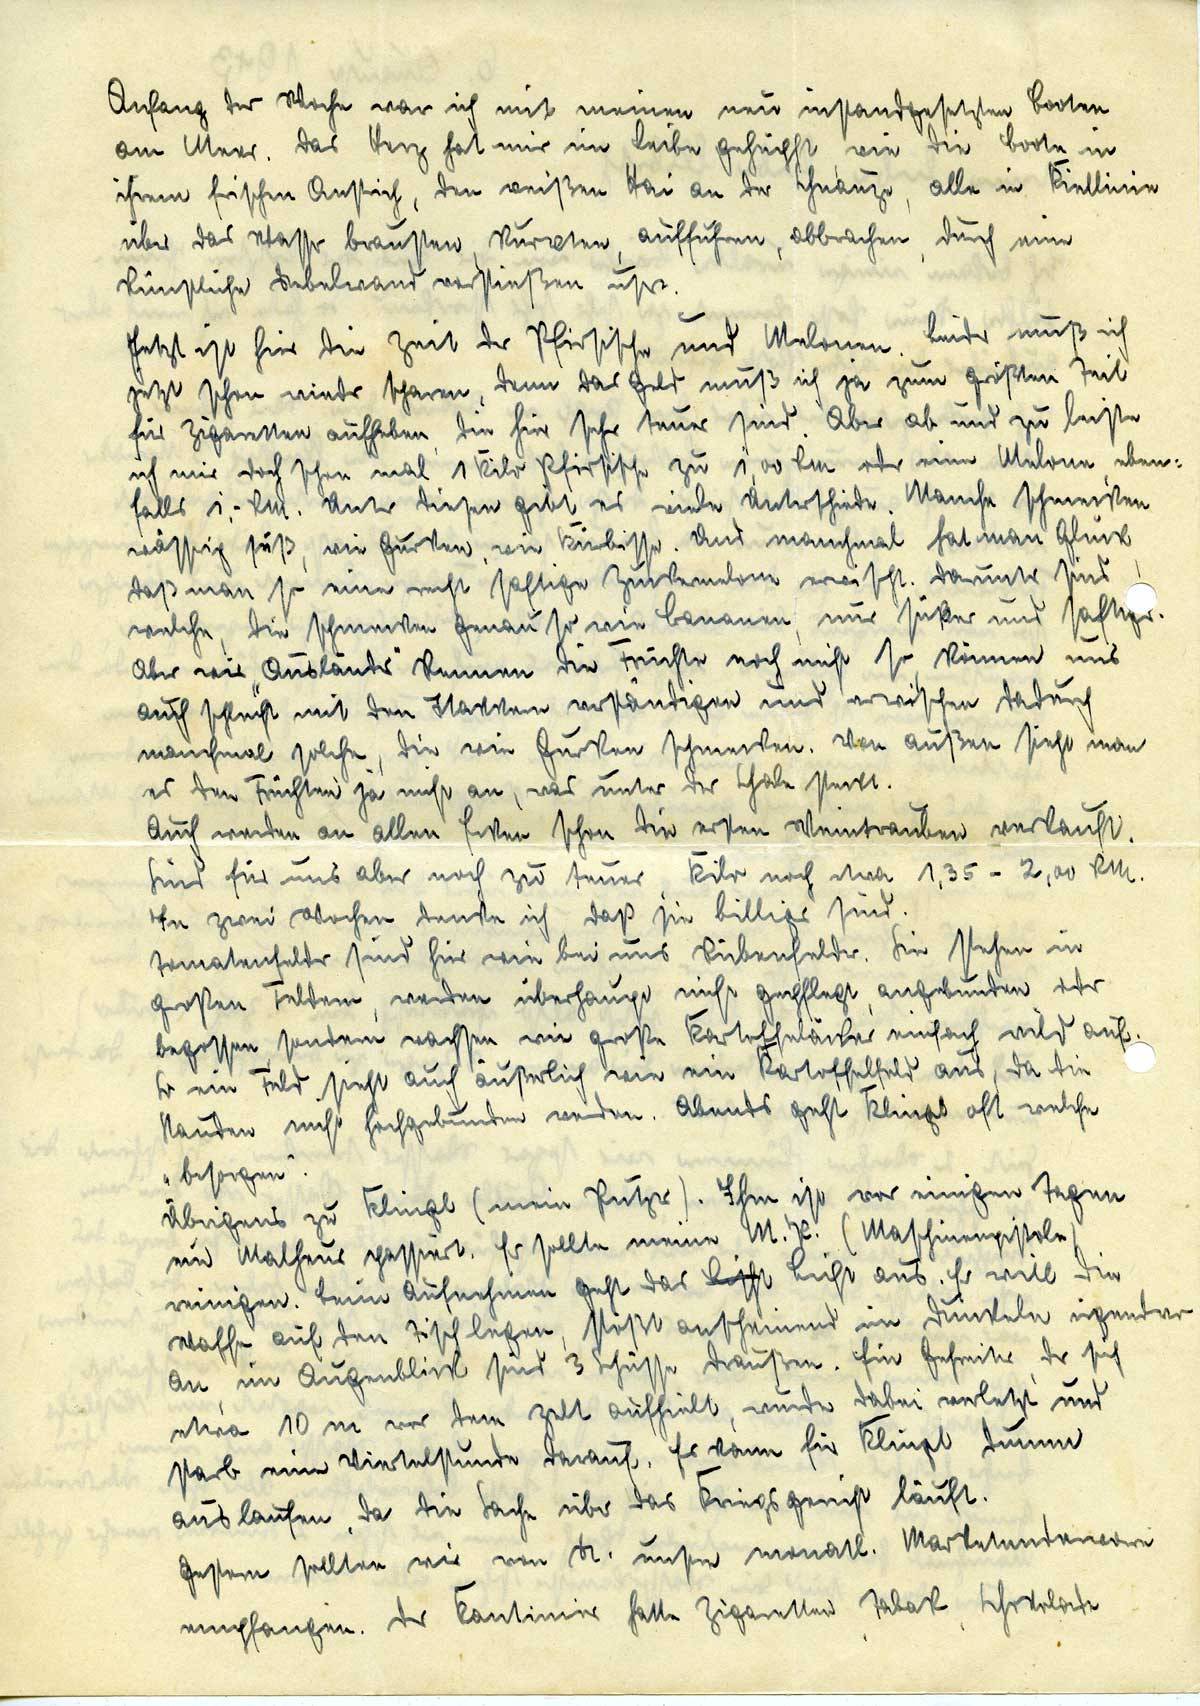 Anfang der Woche war ich mit meinen neu instandgesetzten Booten
am Meer. Das Herz hat mir im Leibe gehüpft, wie die Boote in
ihrem frischen Anstrich, den weißen Hai an der Schnauze, alle in Kiellinie
über das Wasser brausten, kurvten, auffuhren, abbrachen, durch eine
künstliche Nebelwand vorstießen usw.
Jetzt ist hier die Zeit der Pfirsische und Melonen. Leider muß ich
jetzt schon wieder sparen, denn das Geld muß ich ja zum größten Teil
für Zigaretten aufheben, die hier sehr teuer sind. Aber ab und zu leiste
ich mir doch schon mal 1 Kilo Pfirsische zu 1,00 RM oder eine Melone, eben-
falls 1,- RM. Unter diesen gibt es viele Unterschiede. Manche schmecken
wässrig süß, wie Gurken, wie Kürbisse. Und manchmal hat man Glück,
daß man so eine recht saftige Zuckermelone erwischt. Darunter sind
welche, die schmecken genau so wie Bananen, nur süßer und saftiger.
Aber wir „Ausländer" kennen die Früchte noch nicht so können uns
auch schlecht mit den Itakkern verständigen und erwischen dadurch
manchmal solche, die wie Gurken schmecken. Von außen sieht man
es den Früchten ja nicht an, was unter der Schale steckt.
Auch werden an allen Ecken schon die ersten Weintrauben verkauft.
Sind für uns aber noch zu teuer, Kilo noch etwa 1,35 - 2,00 RM.
In zwei Wochen denke ich daß sie billiger sind.
Tomatenfelder sind hier wie bei uns Rübenfelder. Sie stehen in
großen Feldern, werden überhaupt nicht gepflegt, angebunden oder
begossen, sondern wachsen wie große Kartoffeläcker einfach wild auf.
So ein Feld sieht auch äußerlich wie ein Kartoffelfeld aus, da die
Stauden nicht hochgebunden werden. Abends geht Klingl oft welche
„besorgen".
Übrigens zu Klingl (mein Putzer). Ihm ist vor einigen Tagen
ein Malheur passiert. Er sollte meine M.P. (Maschinenpistole)
reinigen. Beim Aufnehmen geht das Licht aus. Er will die
Waffe auf den Tisch legen, stößt anscheinend im Dunkeln irgendwo
an, im Augenblick sind 3 Schüsse draußen. Ein Gefreiter, der sich
etwa 10 m vor dem Zelt aufhielt, wurde dabei verletzt und
starb eine Viertelstunde darauf. Es kann für Klingl dumm
auslaufen, da die Sache über das Kriegsgericht läuft.
Gestern sollten wir von unsere monatl. Marketenderware
empfangen. Der Kantinier hatte Zigaretten, Tabak, Schokolade